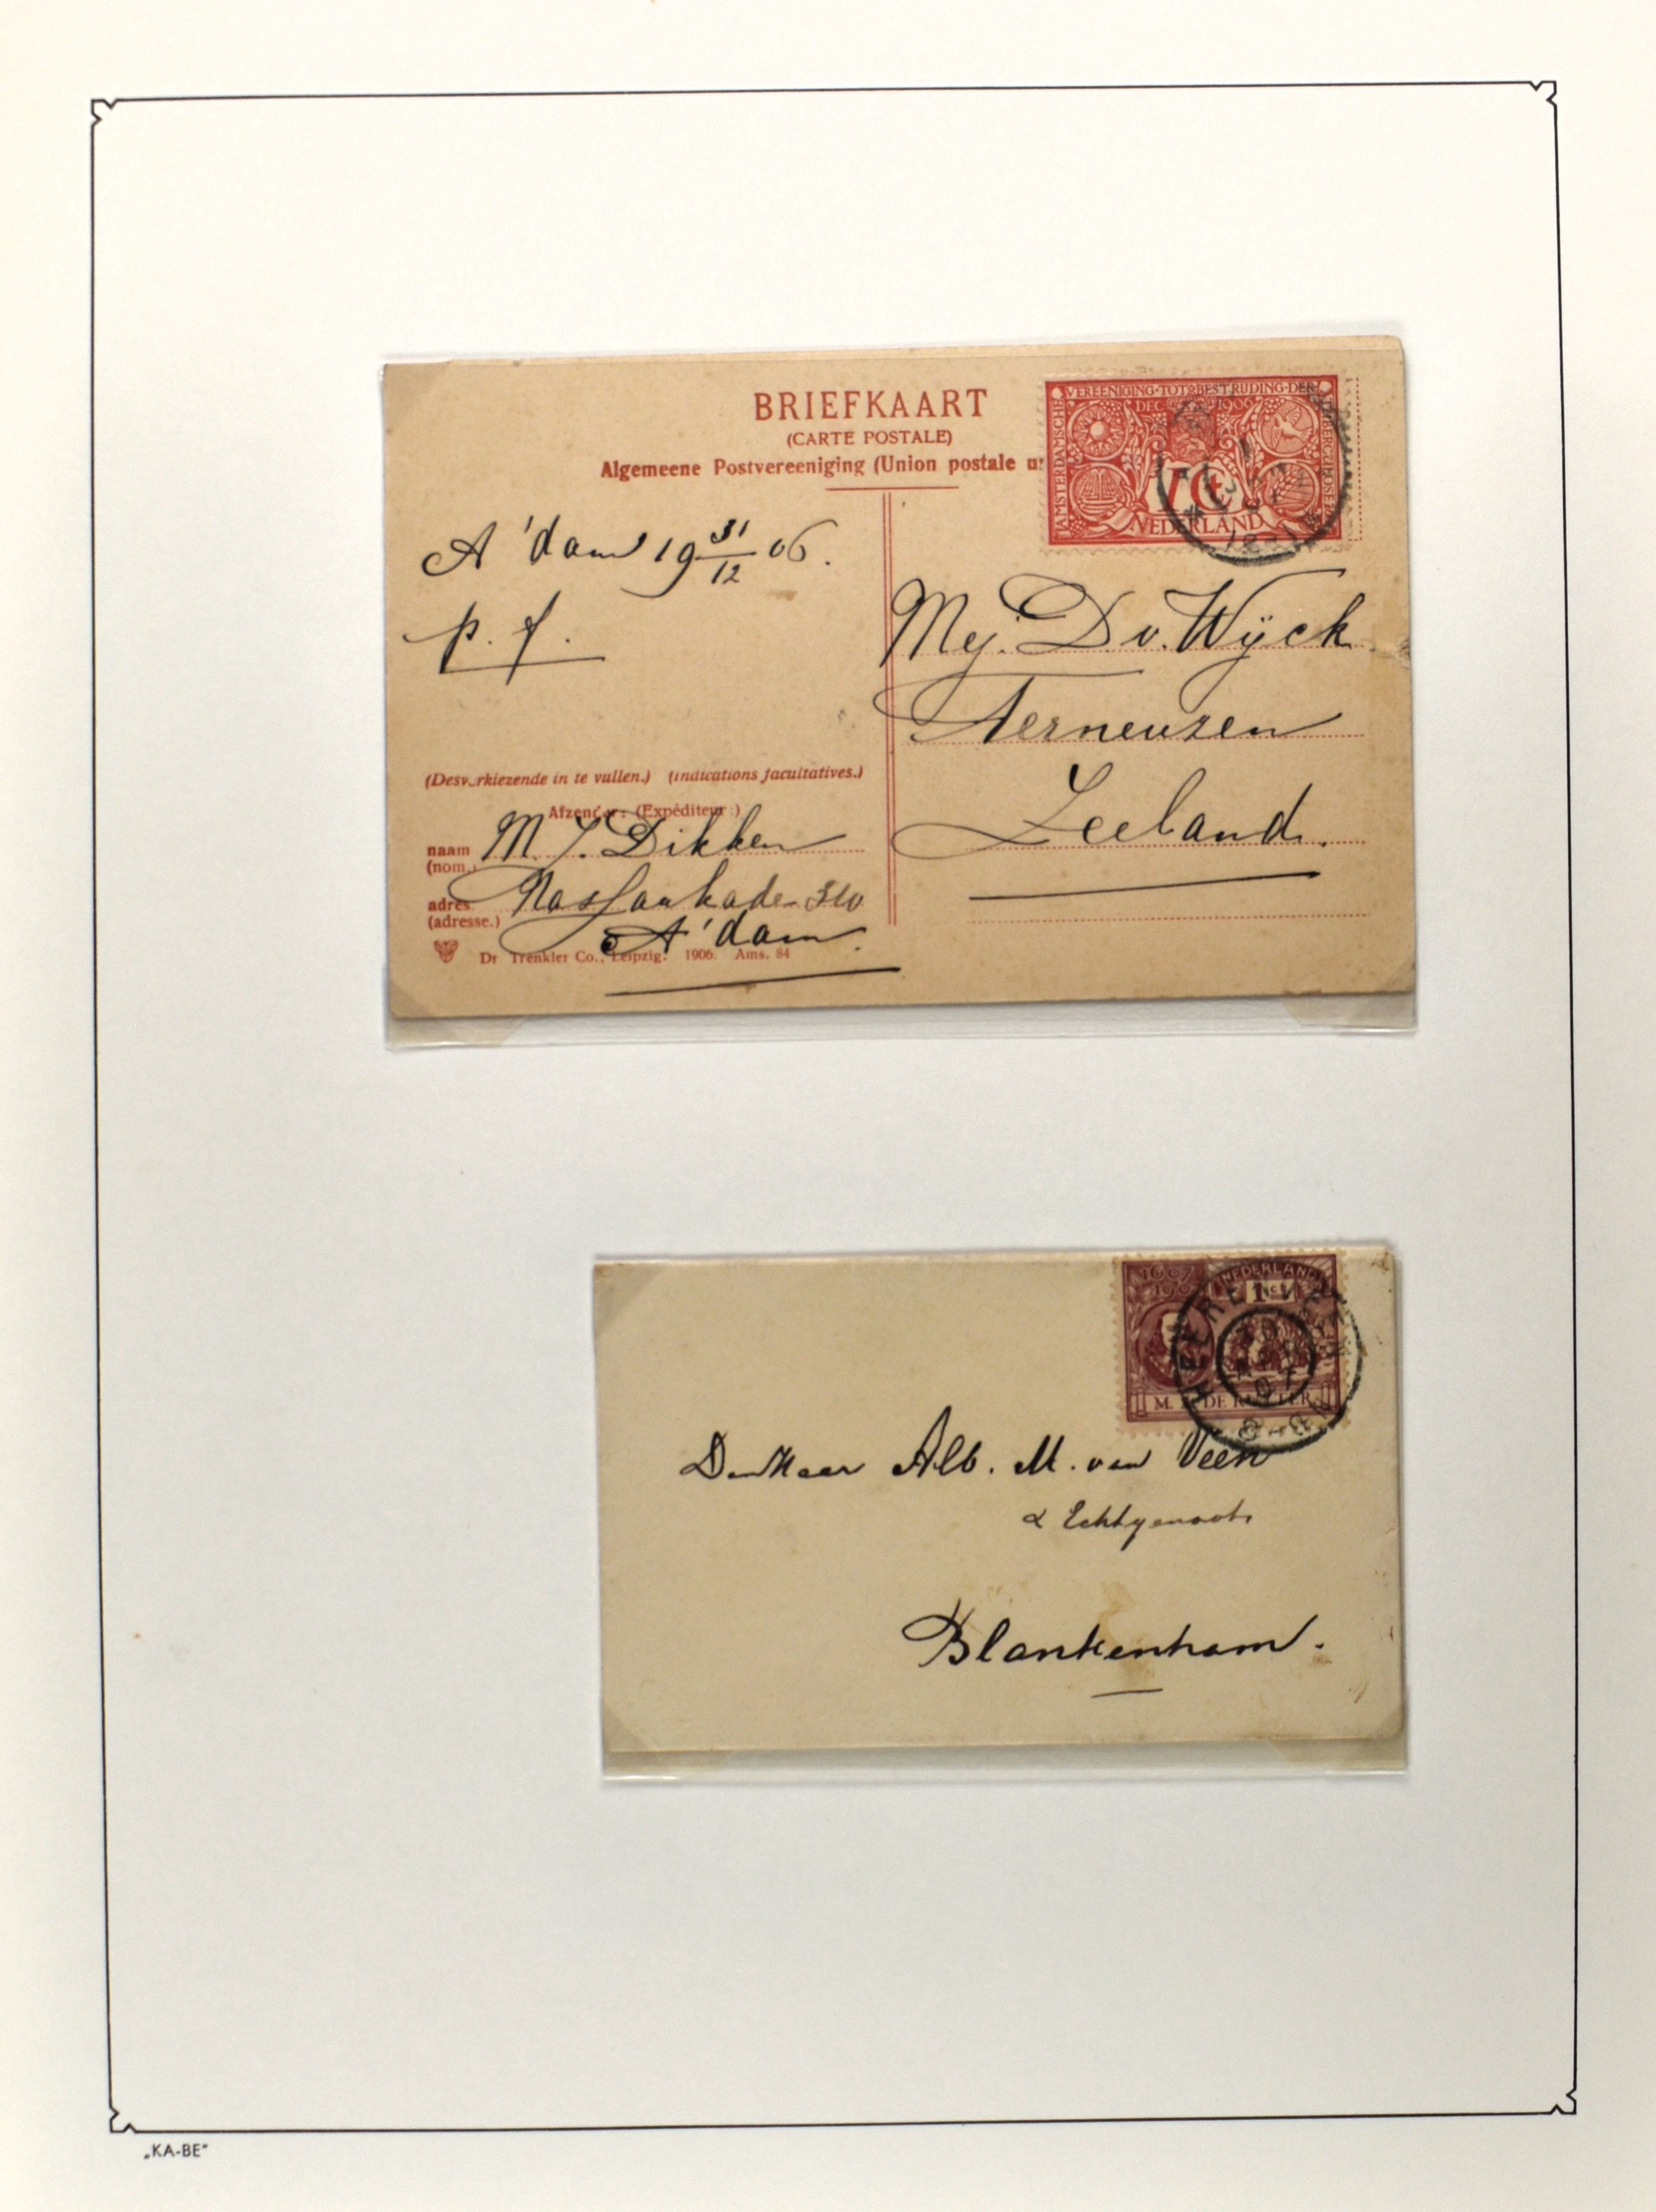 BRIEFKAART
(CARTE POSTALE)
Algemeene Postvereeniging (Union postale u
VEREENIGING·TOT·BESTRIJDING·DER
AMSTERDAMSCHE
DEC 1906
NEDERLAND
A'dam 19 31/12 06.
p. f.
Mej. D. v. Wijck
Terneuzen
Zeeland.
(Desverkiezende in te vullen.) (indications facultatives.)
Afzender: (Expéditeur:)
naam M. J. Dikken
(nom.)
adres Nassaukade 310
(adresse.) A'dam.
Dr Trenkler Co., Leipzig. 1906. Ams. 84
1667
1907
NEDERLAND
1 ct
M. A. DE RUYTER
HEERENVEEN
APR
07
Den Heer Alb. M. van Veen
& Echtgenoote
Blankenham.
„KA-BE"